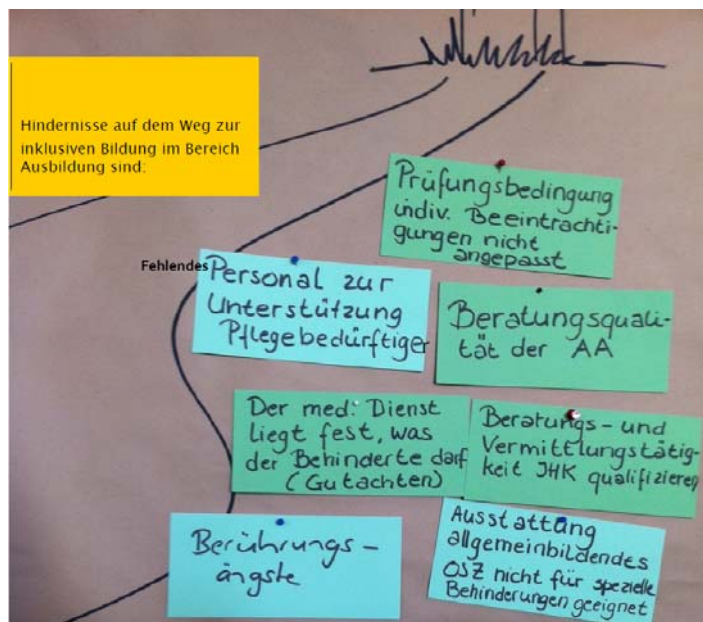 Hindernisse auf dem Weg zur
inklusiven Bildung im Bereich
Ausbildung sind:
Prüfungsbedingung
indiv. Beeintrachti-
gungen nicht
angepasst
Fehlendes
Personal zur
Unterstützung
Pflegebedürftiger
Beratungsquali-
tät der AA
Der med. Dienst
liegt fest, was
der Behinderte darf
(Gutachten)
Beratungs- und
Vermittlungstätig-
keit IHK qualifizieren
Berührungs-
ängste
Ausstattung
allgemeinbildendes
OSZ nicht für spezielle
Behinderungen geeignet